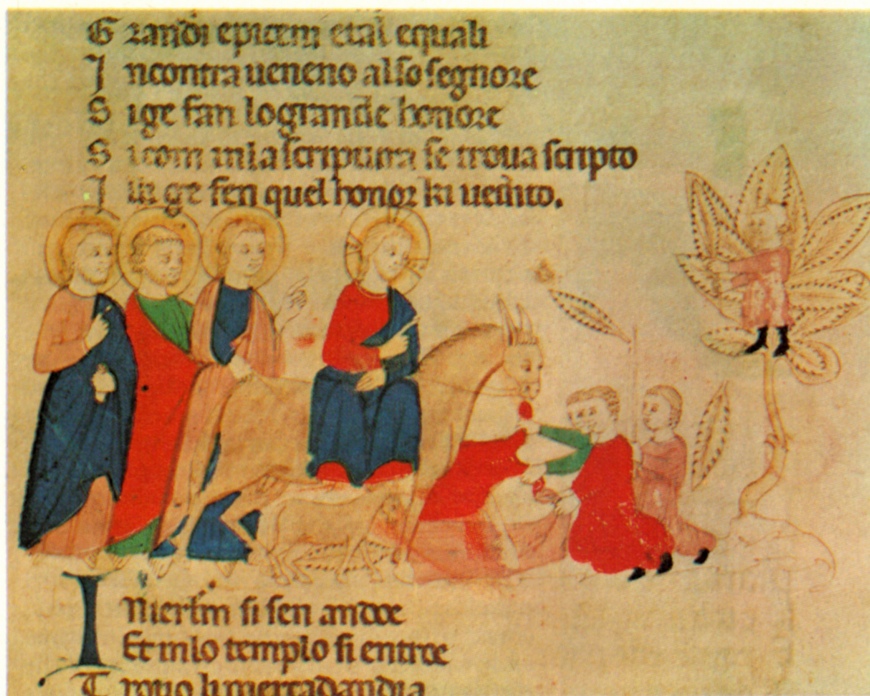 G randi epiceni etal equali
I ncontra ueneno also segnore
S ige fan logrande honore
S icom inla scriptura se troua scripto
I lli ge fen quel honor ki
I nierlm si sen andoe
Et inlo templo si entroe
T rouo li mercadandia